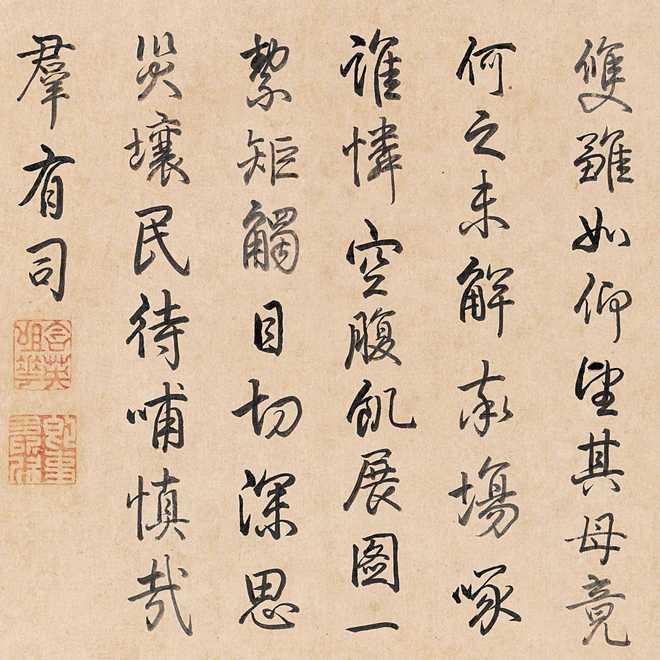 雙雛如仰望其母竟
何之未解率場啄
誰憐空腹飢展圖一
絜矩觸目切深思
災壤民待哺慎哉
羣有司
含英咀華